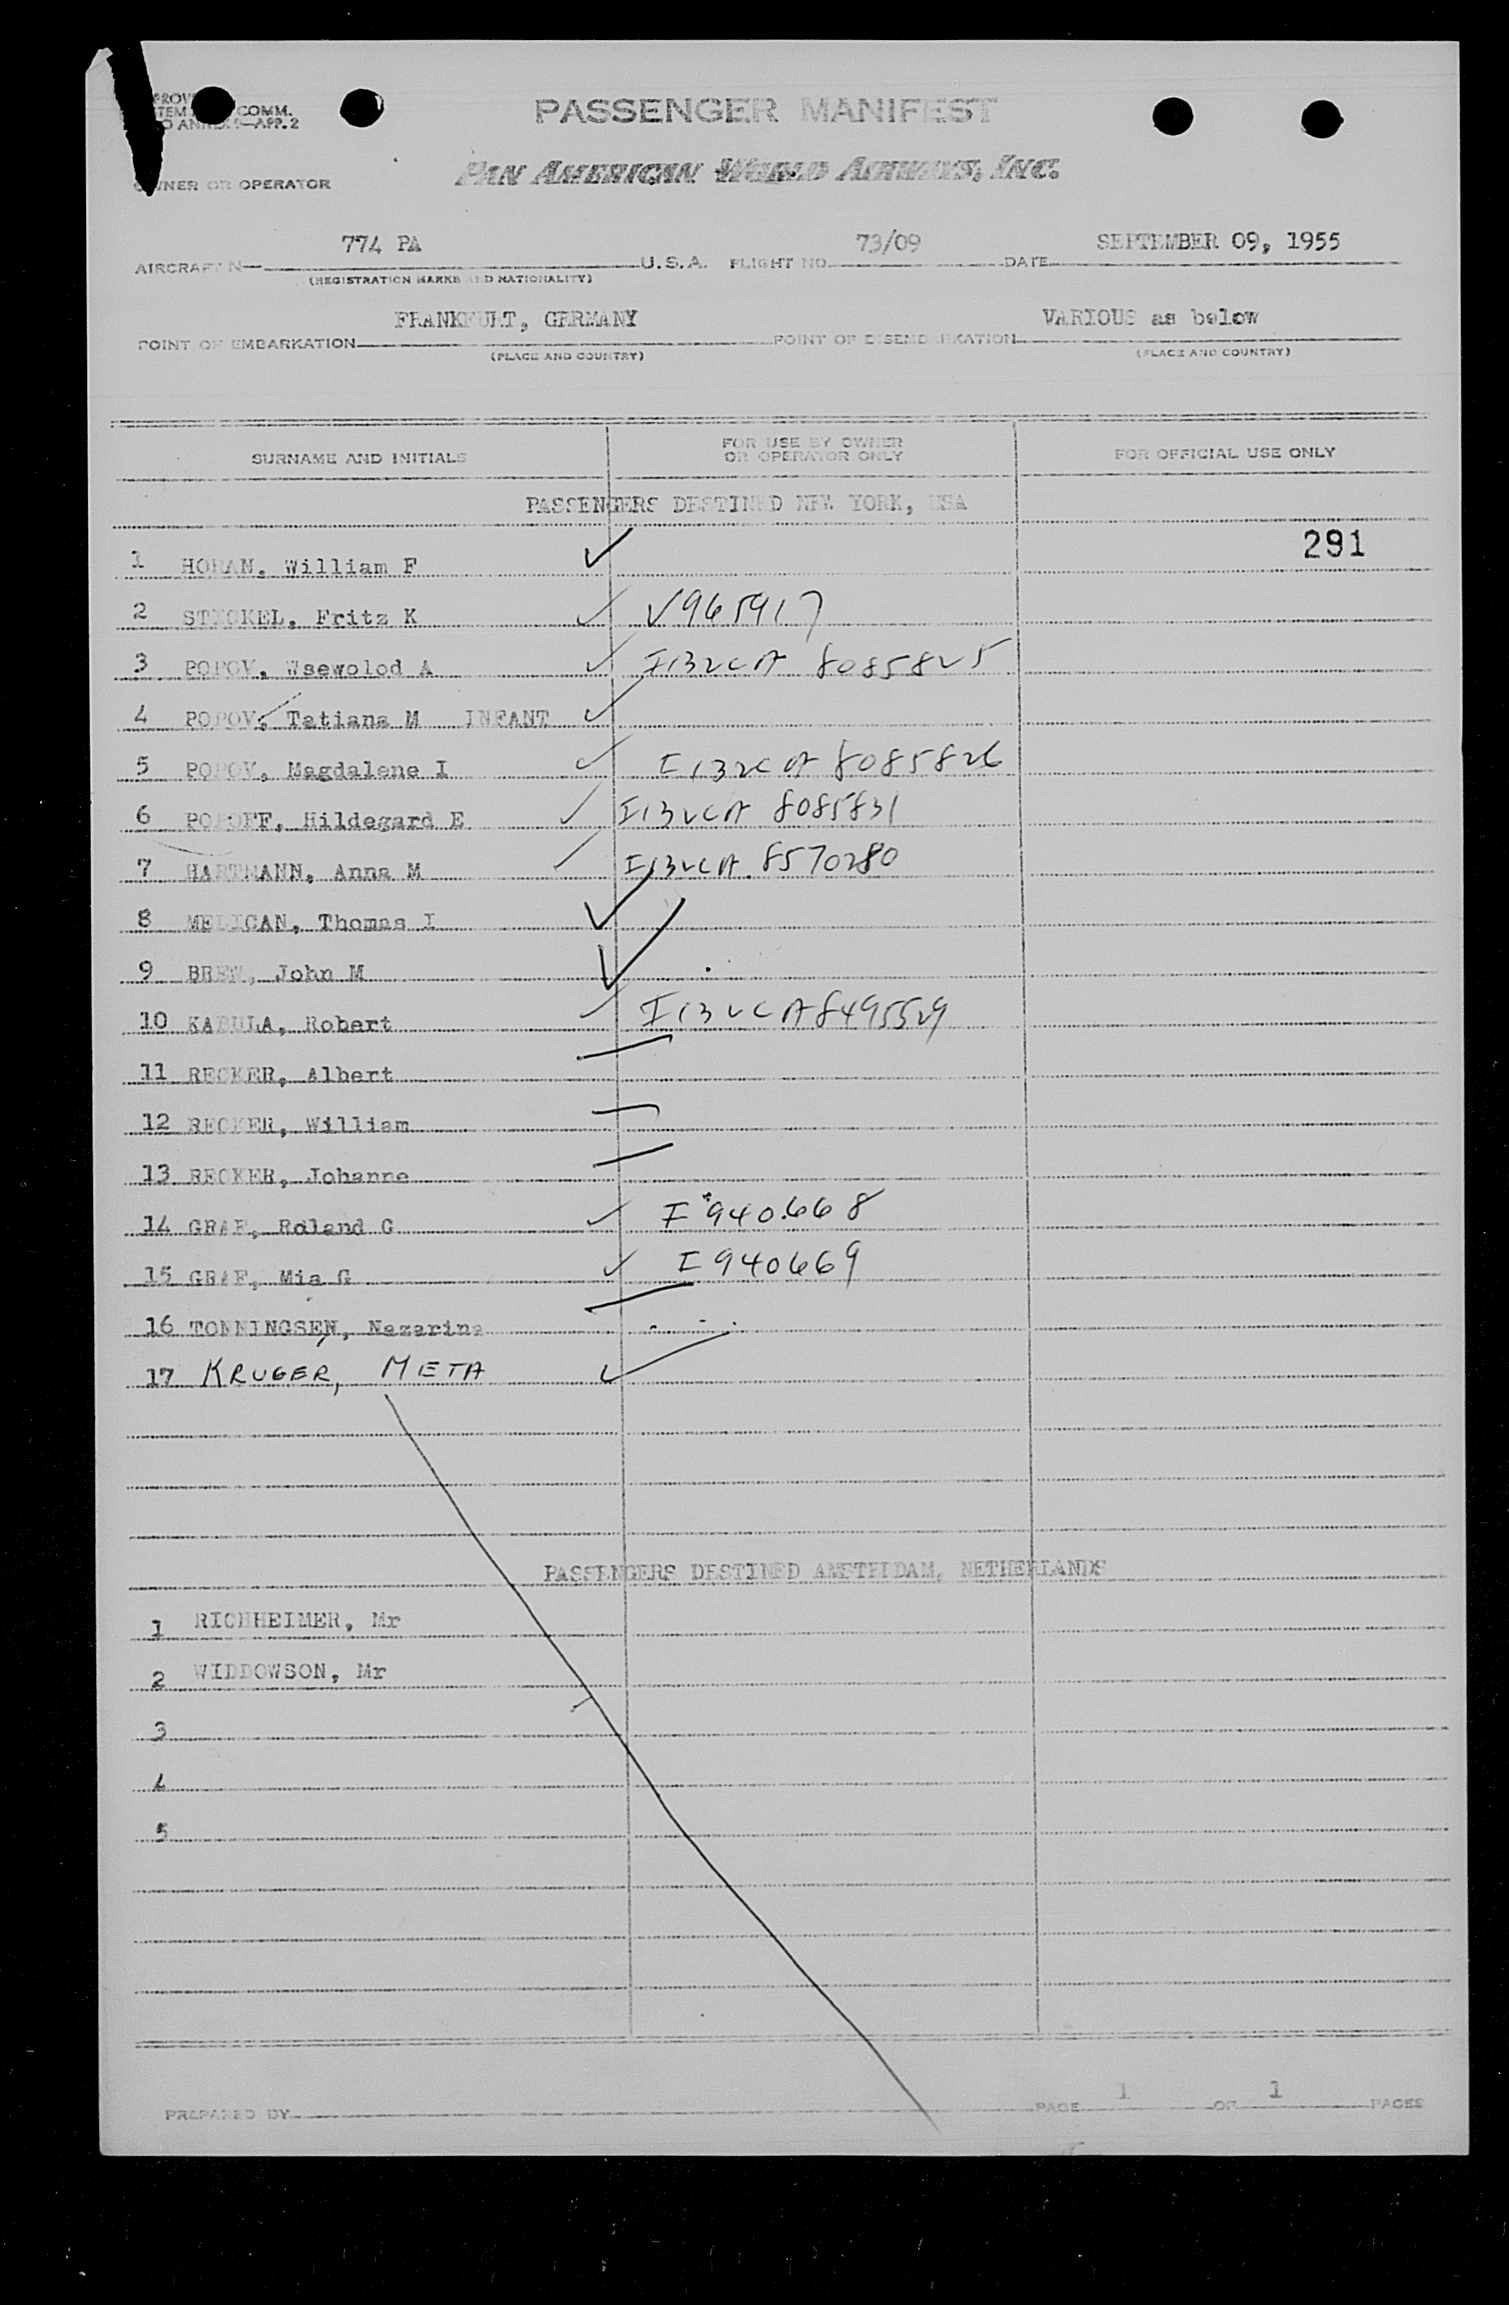 COMM.
APP. 2
PASSENGER MANIFEST
PAN AMERICAN WORLD AIRWAYS, INC.
OWNER OR OPERATOR
774 PA 73/09 SEPTEMBER 09, 1955
AIRCRAFT N U.S.A. FLIGHT NO. DATE
(REGISTRATION MARKS AND NATIONALITY)
FRANKFURT, GERMANY VARIOUS as below
POINT OF EMBARKATION POINT OF DISEMBARKATION
(PLACE AND COUNTRY) (PLACE AND COUNTRY)
SURNAME AND INITIALS FOR USE BY OWNER OR OPERATOR ONLY FOR OFFICIAL USE ONLY
PASSENGERS DESTINED NEW YORK, USA
1 HORAN, William F 291
2 Fritz K V965917
3 POPOV, Wsewolod A I132CA 8085825
4 POPOV, Tatiana M INFANT
5 POPOV, Magdalene I I132CA 8085826
6 POPOFF, Hildegard E I132CA 8085831
7 HARTMANN, Anna M I132CA 8570280
8 MELICAN, Thomas I
9 John M
10 Robert I132CA 8495529
11 RECKER, Albert
12 RECKER, William
13 RECKER, Johanne
14 GRAF, Roland G I 940668
15 GRAF, Mia G I 940669
16 TONNINGSEN, Nazarina
17 KRUGER, META
PASSENGERS DESTINED AMSTERDAM, NETHERLANDS
1 RICHHEIMER, Mr
2 WIDDOWSON, Mr
3
4
5
PREPARED BY PAGE 1 OF 1 PAGES